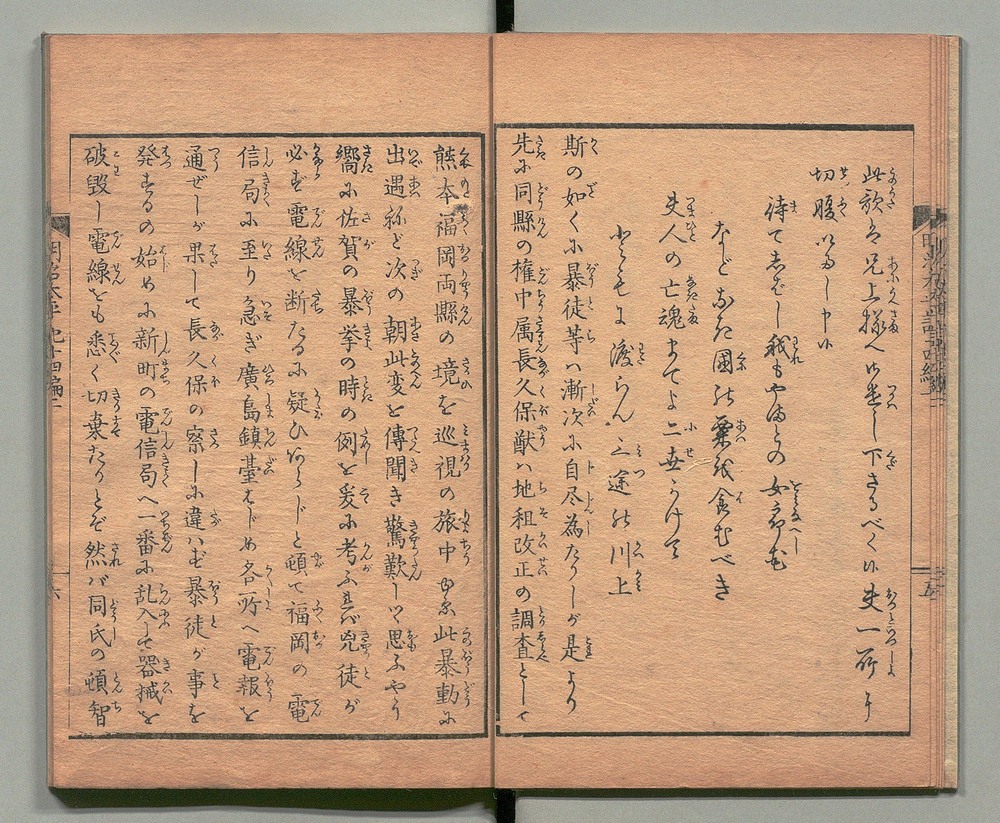 此歌は兄上様へ御遣し下さるべく候夫一所に
切腹いたし申候
待てしばし我もやまとの女郎花
などあだ国の粟を食むべき
夫人の亡魂まてよ二世かけて
ともに渡らん三途の川上
斯の如くに暴徒等ハ漸次に自尽為たりしが是より
先に同縣の権中属長久保猷ハ地租改正の調査として
熊本福岡両縣の境を巡視の旅中
此暴動に
出遇ねど次の朝此変を傳聞き驚歎しつ思ふやう
嚮に佐賀の暴挙の時の例を爰に考ふれば兇徒が
必ず電線を断たるに疑ひあらじと頓て福岡の電
信局に至り急ぎ廣島鎮臺はじめ各所へ電報を
通ぜしが果して長久保の察しに違ハず暴徒が事を
発するの始めに新町の電信局へ一番に乱入して器械を
破毀し電線をも悉く切棄たりとぞ然バ同氏の頓智
明治太平記十四編二
五
六